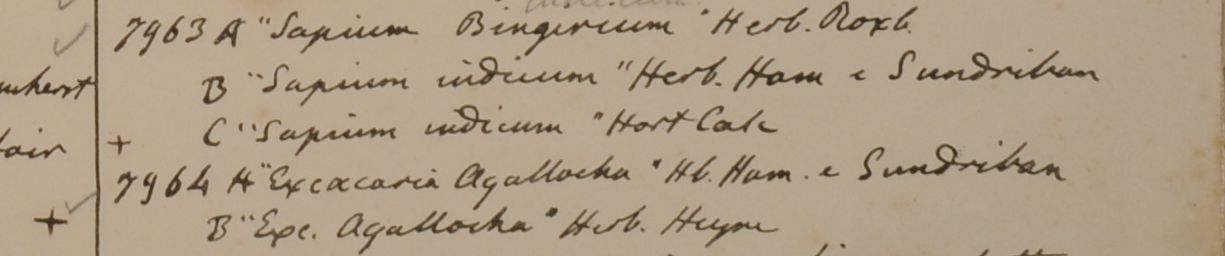 7963 A "Sapium Bingerium" Herb. Roxb.
umherst B "Sapium indicum" Herb. Ham e Sundriban
+ C "Sapium indicum" Hort Calc
7964 A "Excaecaria Agallocha" Hb. Ham. e Sundriban
+ B "Exc. Agallocha" Herb. Heyne